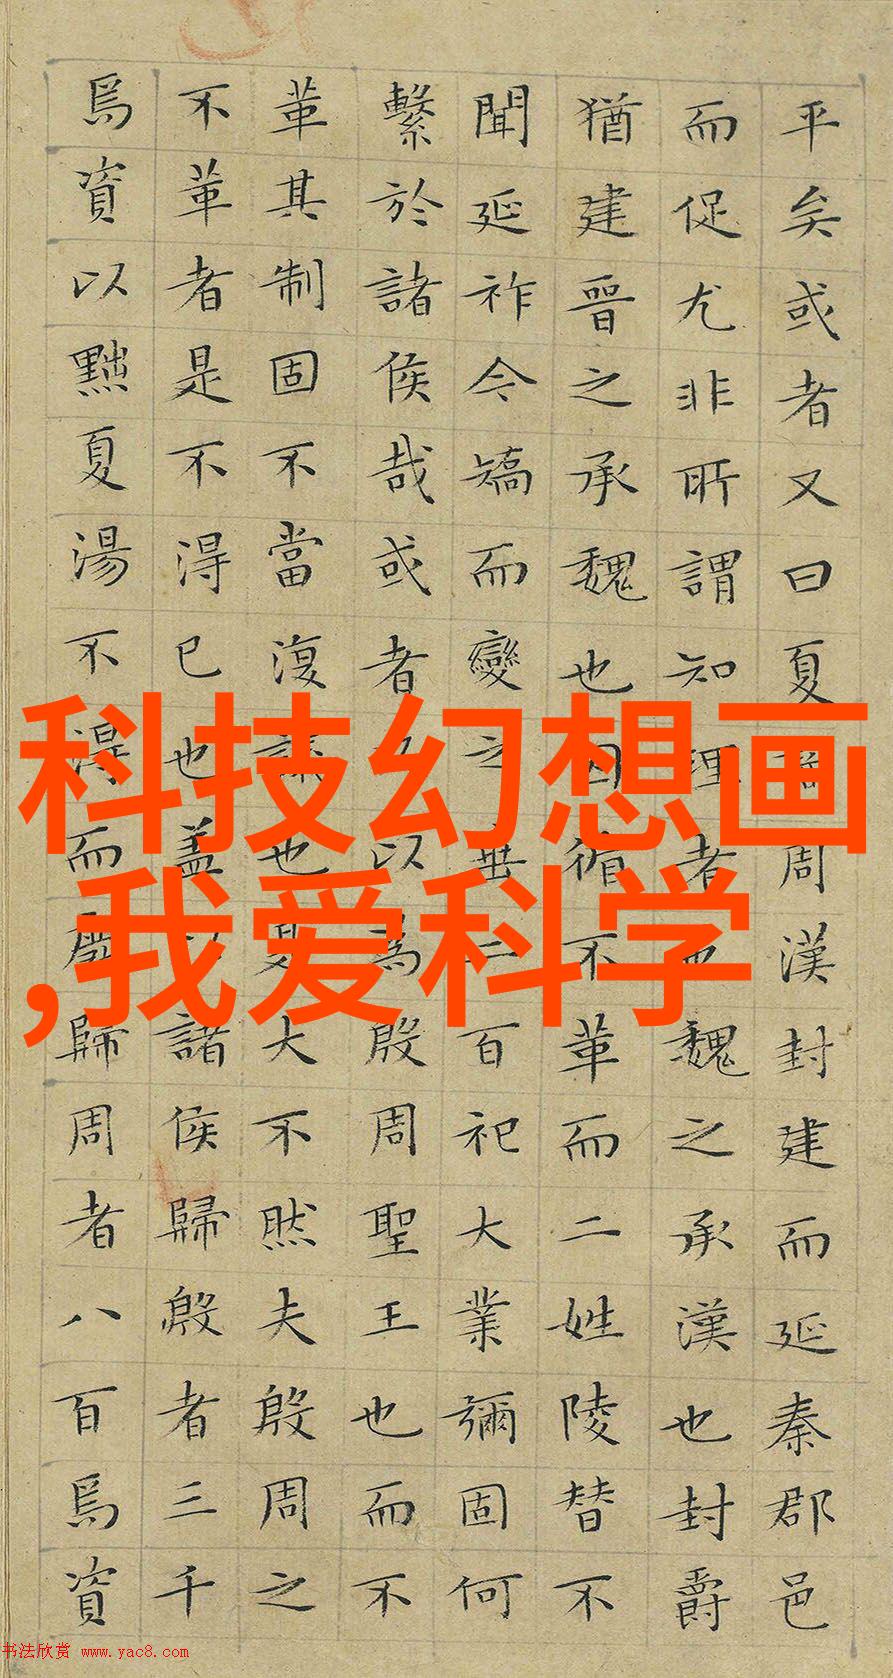 平矣或者又曰夏商周漢封建而延秦郡邑
而促尤非所謂知理者也魏之承漢也封爵
猶建晉之承魏也因循不革而二姓陵替不
聞延祚今矯而變之垂二百祀大業彌固何
繫於諸侯哉或者又以為殷周聖王也而不
革其制固不當復議也是大不然夫殷周之
不革者是不得已也蓋以諸侯歸殷者三千
焉資以黜夏湯不得而廢歸周者八百焉資
科技幻想画
,我爱科学
书法欣赏 www.yac8.com